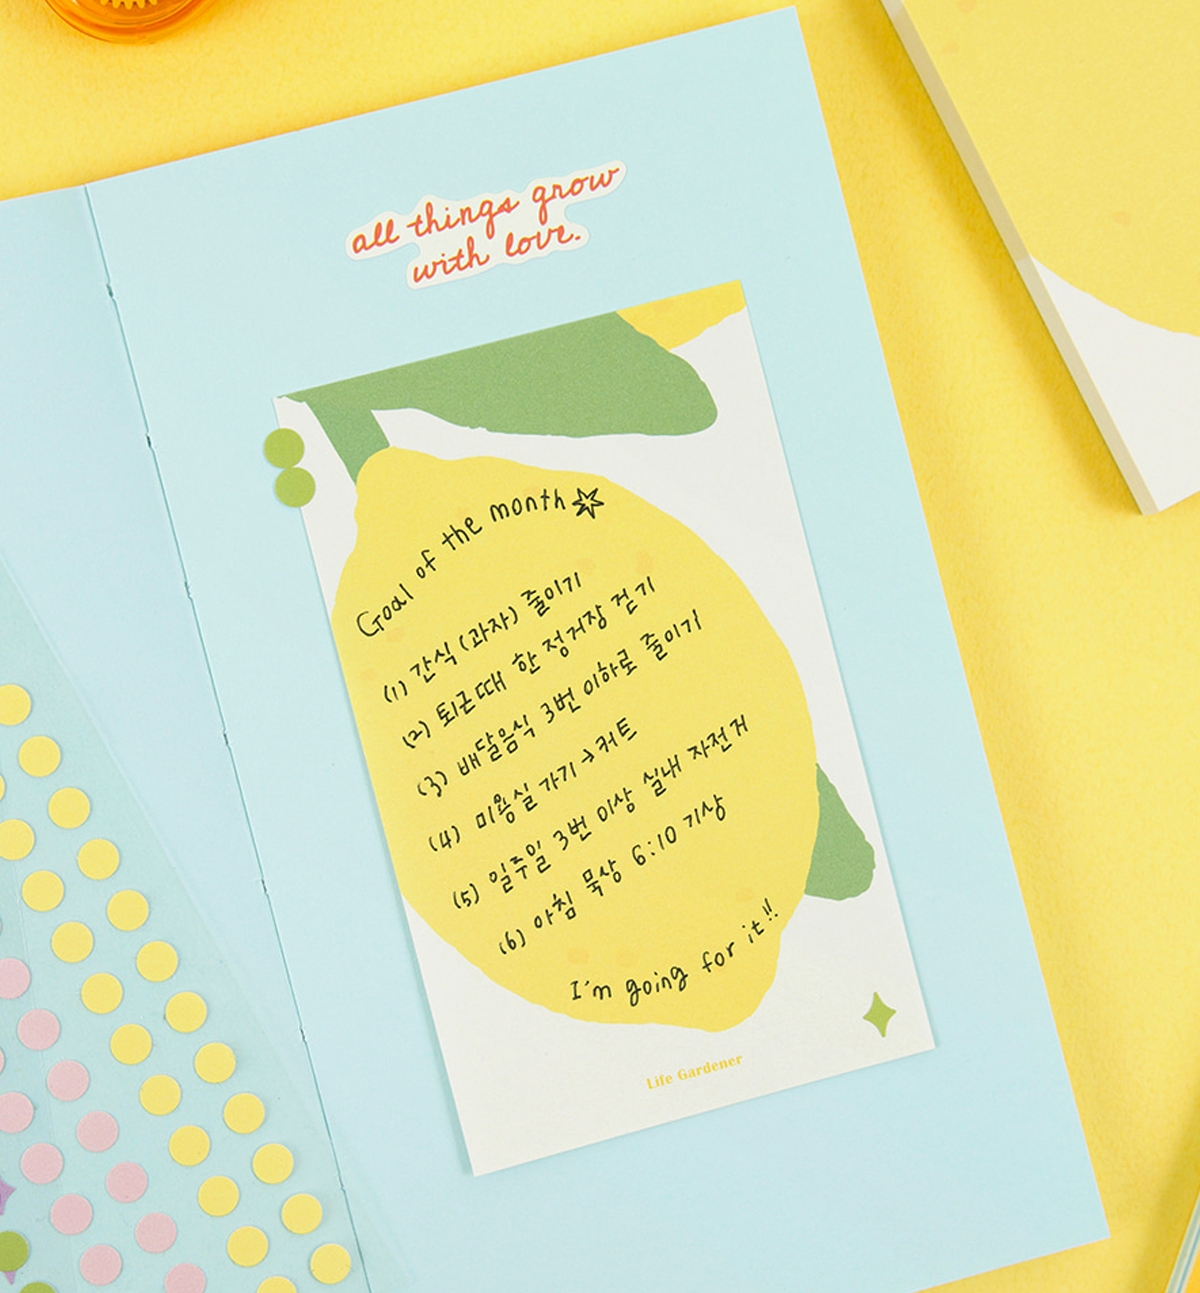 all things grow
with love.
Goal of the month
(1) 간식(과자) 줄이기
(2) 퇴근때 한 정거장 걷기
(3) 배달음식 3번 이하로 줄이기
(4) 미용실 가기→커트
(5) 일주일 3번 이상 실내 자전거
(6) 아침 묵상 6:10 기상
I'm going for it!!
Life Gardener